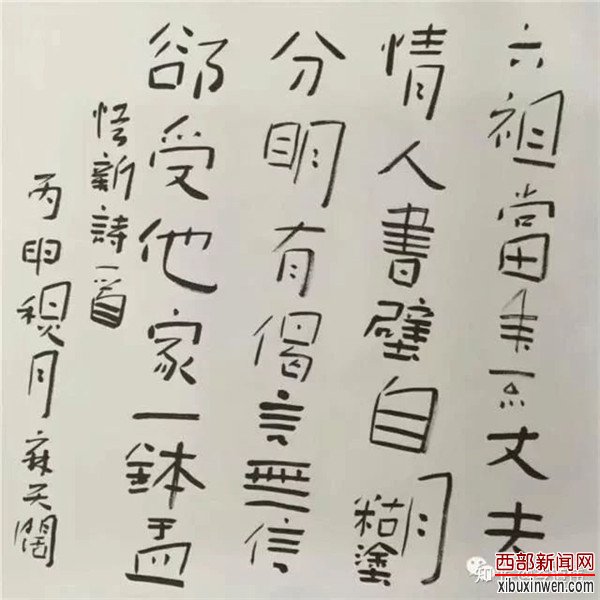 六祖當年不丈夫
情人書壁自糊塗
分明有偈言無信
郤受他家一鉢盂
悟新詩一首
丙申月麻天闊
西部新闻网
xibuxinwen.com